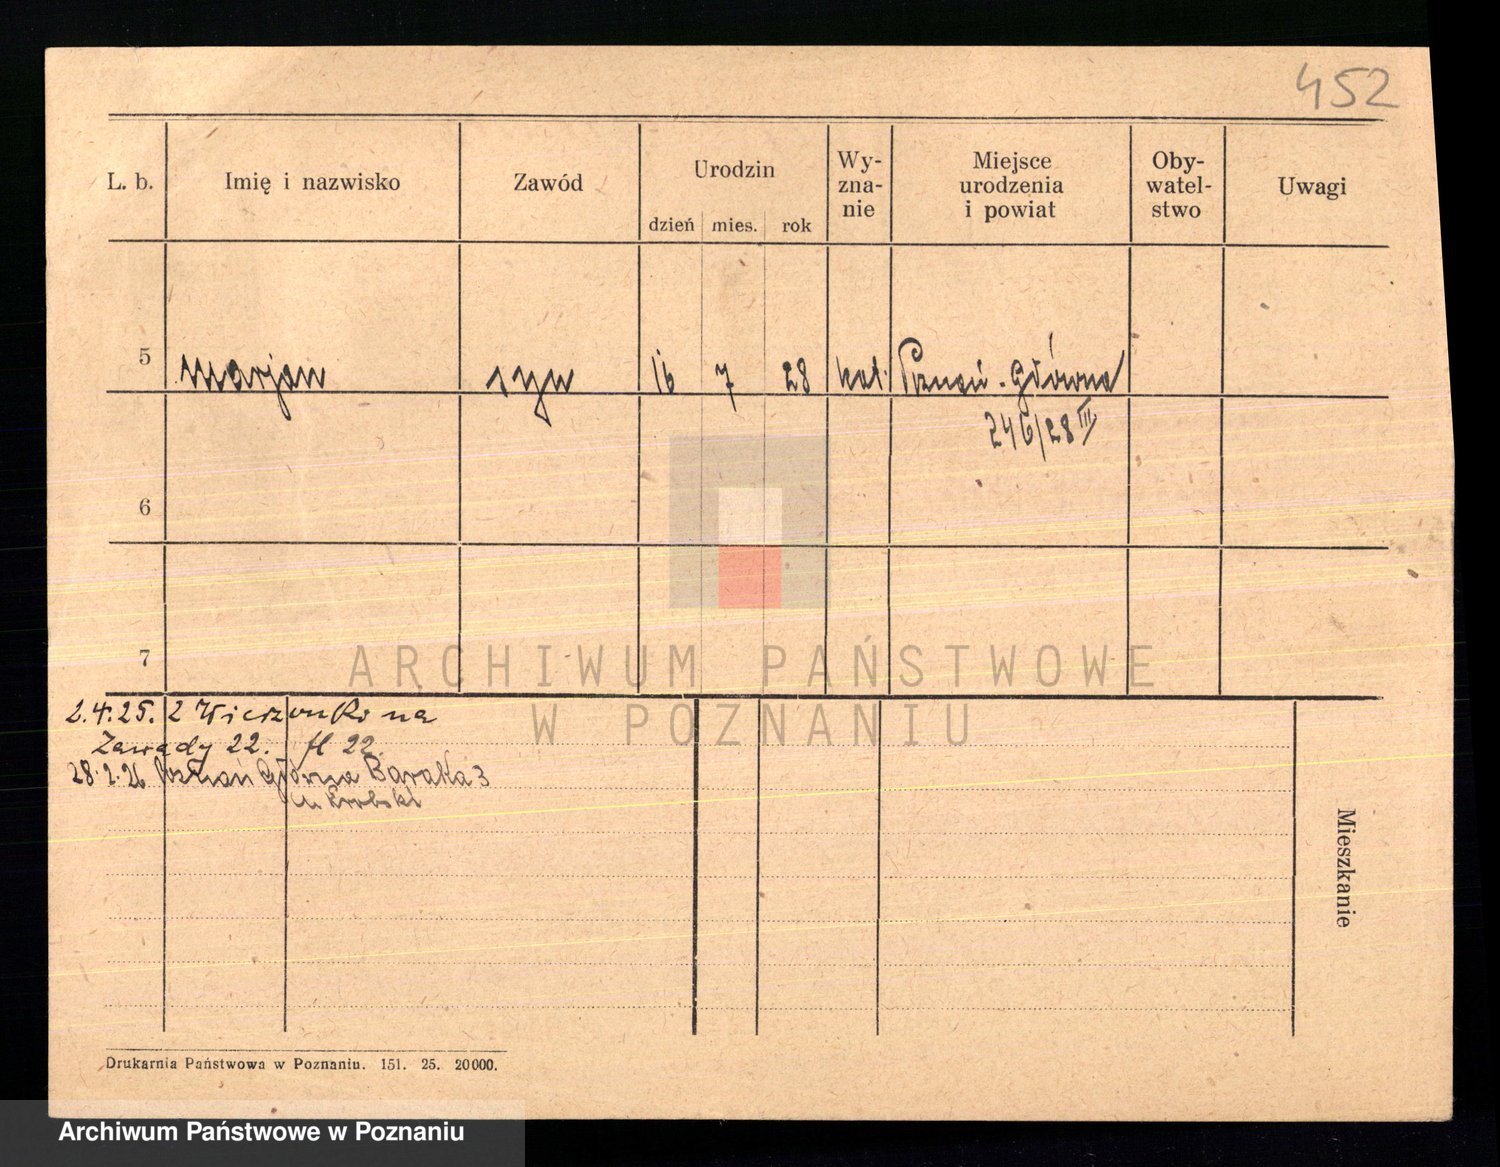 452
L. b.
Imię i nazwisko
Zawód
Urodzin
dzień mies. rok
Wy-
zna-
nie
Miejsce
urodzenia
i powiat
Oby-
watel-
stwo
Uwagi
5 Marjan syn 16 7 28 kat. Poznań-Główna
246/28 III
6
7
ARCHIWUM PAŃSTWOWE
W POZNANIU
2.4.25. z Wierzonki na
Zawady 22. 22.
28.2.26 Poznań Główna Baraka 3
Mieszkanie
Drukarnia Państwowa w Poznaniu. 151. 25. 20000.
Archiwum Państwowe w Poznaniu